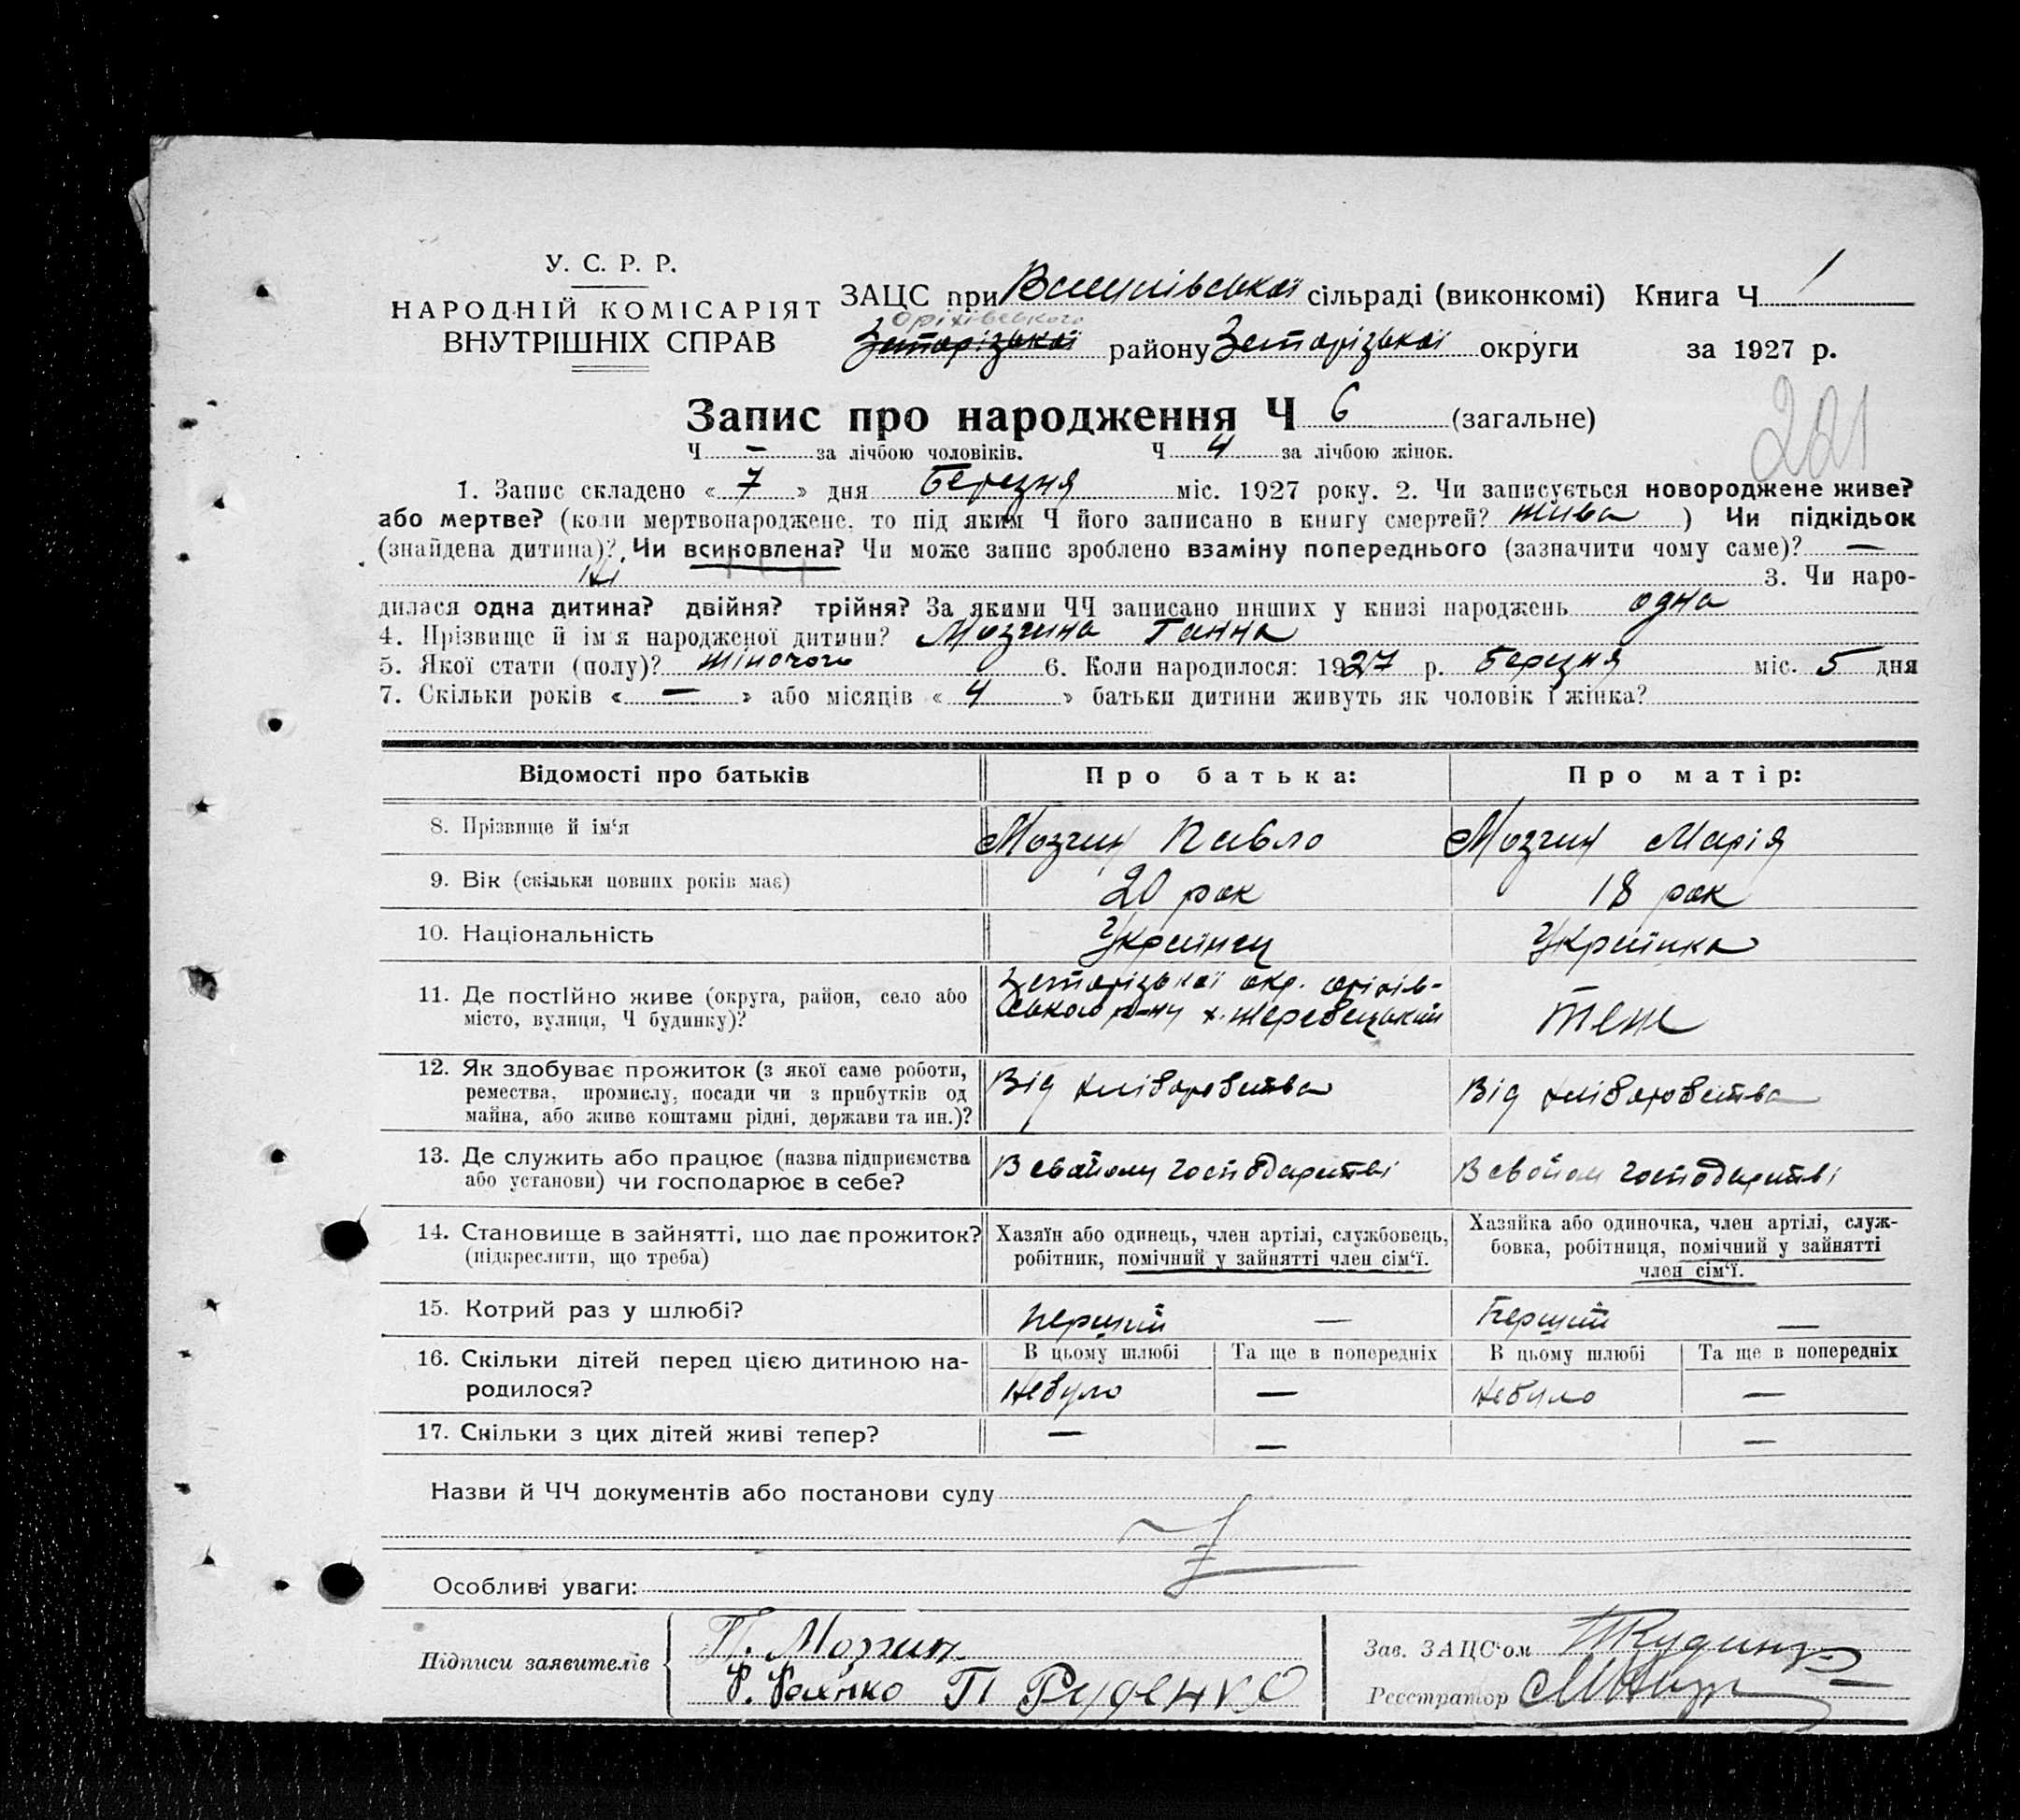 У. С. Р. Р.
НАРОДНІЙ КОМІСАРІЯТ
ВНУТРІШНІХ СПРАВ
ЗАЦС при сільраді (виконкомі) Книга Ч 1
Оріхівського
району округи за 1927 р.
221
Запис про народження Ч 6 (загальне)
Ч — за лічбою чоловіків. Ч 4 за лічбою жінок.
1. Запис складено « 7 » дня Березня міс. 1927 року. 2. Чи записується новороджене живе?
або мертве? (коли мертвонароджене, то під яким Ч його записано в книгу смертей? жива ) Чи підкідьок
(знайдена дитина)? Чи всиновлена? Чи може запис зроблено взаміну попереднього (зазначити чому саме)? —
Ні 3. Чи наро-
дилася одна дитина? двійня? трійня? За якими ЧЧ записано инших у книзі народжень одна
4. Прізвище й ім'я народженої дитини? Мозгина Ганна
5. Якої стати (полу)? жіночого 6. Коли народилося: 1927 р. Березня міс. 5 дня
7. Скільки років « — » або місяців « 4 » батьки дитини живуть як чоловік і жінка?
Відомості про батьків Про батька: Про матір:
8. Прізвище й ім'я Мозгин Павло Мозгин Марія
9. Вік (скільки повних років має) 20 рок 18 рок
10. Національність Українец Українка
11. Де постійно живе (округа, район, село або окр. Оріхів-
місто, вулиця, Ч будинку)? ського р-ну х. Жеребецький Теж
12. Як здобуває прожиток (з якої саме роботи,
ремества, промислу, посади чи з прибутків од Від хліборобства Від хліборобства
майна, або живе коштами рідні, держави та ин.)?
13. Де служить або працює (назва підприємства В свойому господарстві В свойом господарстві
або установи) чи господарює в себе?
14. Становище в зайнятті, що дає прожиток? Хазяїн або одинець, член артілі, службовець, Хазяйка або одиночка, член артілі, служ-
(підкреслити, що треба) робітник, помічний у зайнятті член сім'ї. бовка, робітниця, помічний у зайнятті
член сім'ї.
15. Котрий раз у шлюбі? Перший — Перший —
16. Скільки дітей перед цією дитиною на- В цьому шлюбі Та ще в попередніх В цьому шлюбі Та ще в попередніх
родилося? Небуло — Небуло —
17. Скільки з цих дітей живі тепер? — — —
Назви й ЧЧ документів або постанови суду
Особливі уваги:
Підписи заявителів П. Мозгин Зав. ЗАЦС'ом
П Руденко Реєстратор